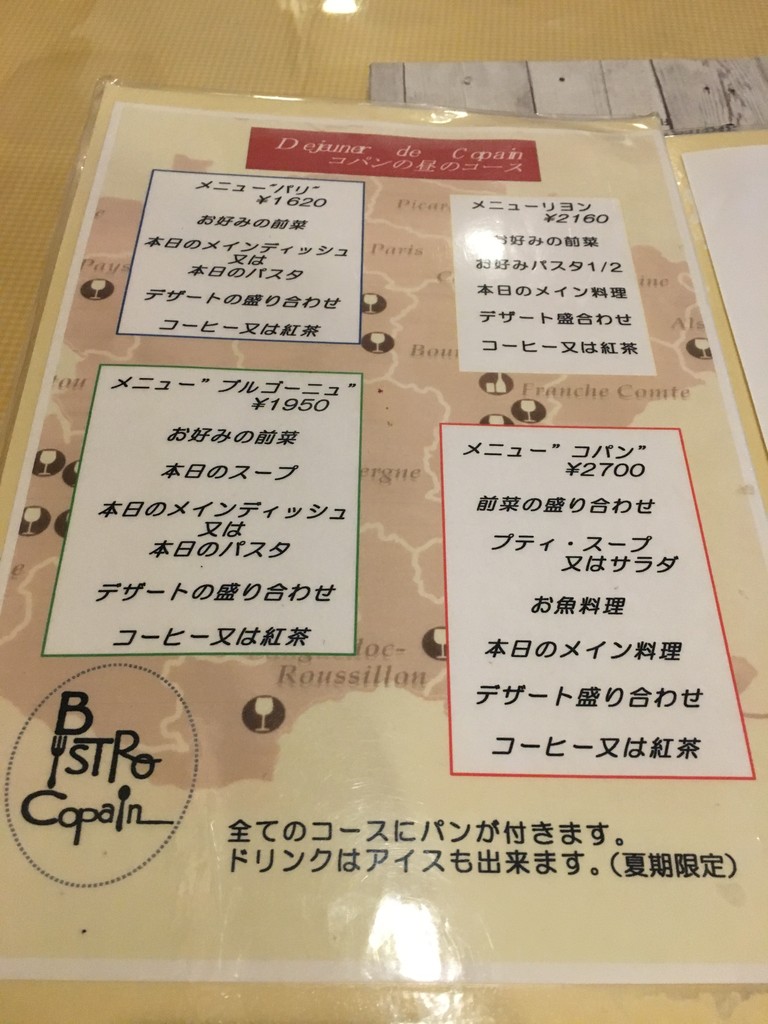 Dejeuner de Copain
コパンの昼のコース
メニュー"パリ"
¥1620
お好みの前菜
本日のメインディッシュ
又は
本日のパスタ
デザートの盛り合わせ
コーヒー又は紅茶
メニューリヨン
¥2160
お好みの前菜
お好みパスタ1/2
本日のメイン料理
デザート盛合わせ
コーヒー又は紅茶
メニュー"ブルゴーニュ"
¥1950
お好みの前菜
本日のスープ
本日のメインディッシュ
又は
本日のパスタ
デザートの盛り合わせ
コーヒー又は紅茶
メニュー"コパン"
¥2700
前菜の盛り合わせ
プティ・スープ
又はサラダ
お魚料理
本日のメイン料理
デザート盛り合わせ
コーヒー又は紅茶
Paris
Franche Comte
Roussillon
BISTRO
Copain
全てのコースにパンが付きます。
ドリンクはアイスも出来ます。(夏期限定)